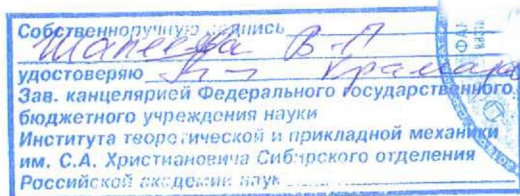 Собственноручную подпись
Шапеева В.П.
удостоверяю
Зав. канцелярией Федерального государственного
бюджетного учреждения науки
Института теоретической и прикладной механики
им. С.А. Христиановича Сибирского отделения
Российской академии наук